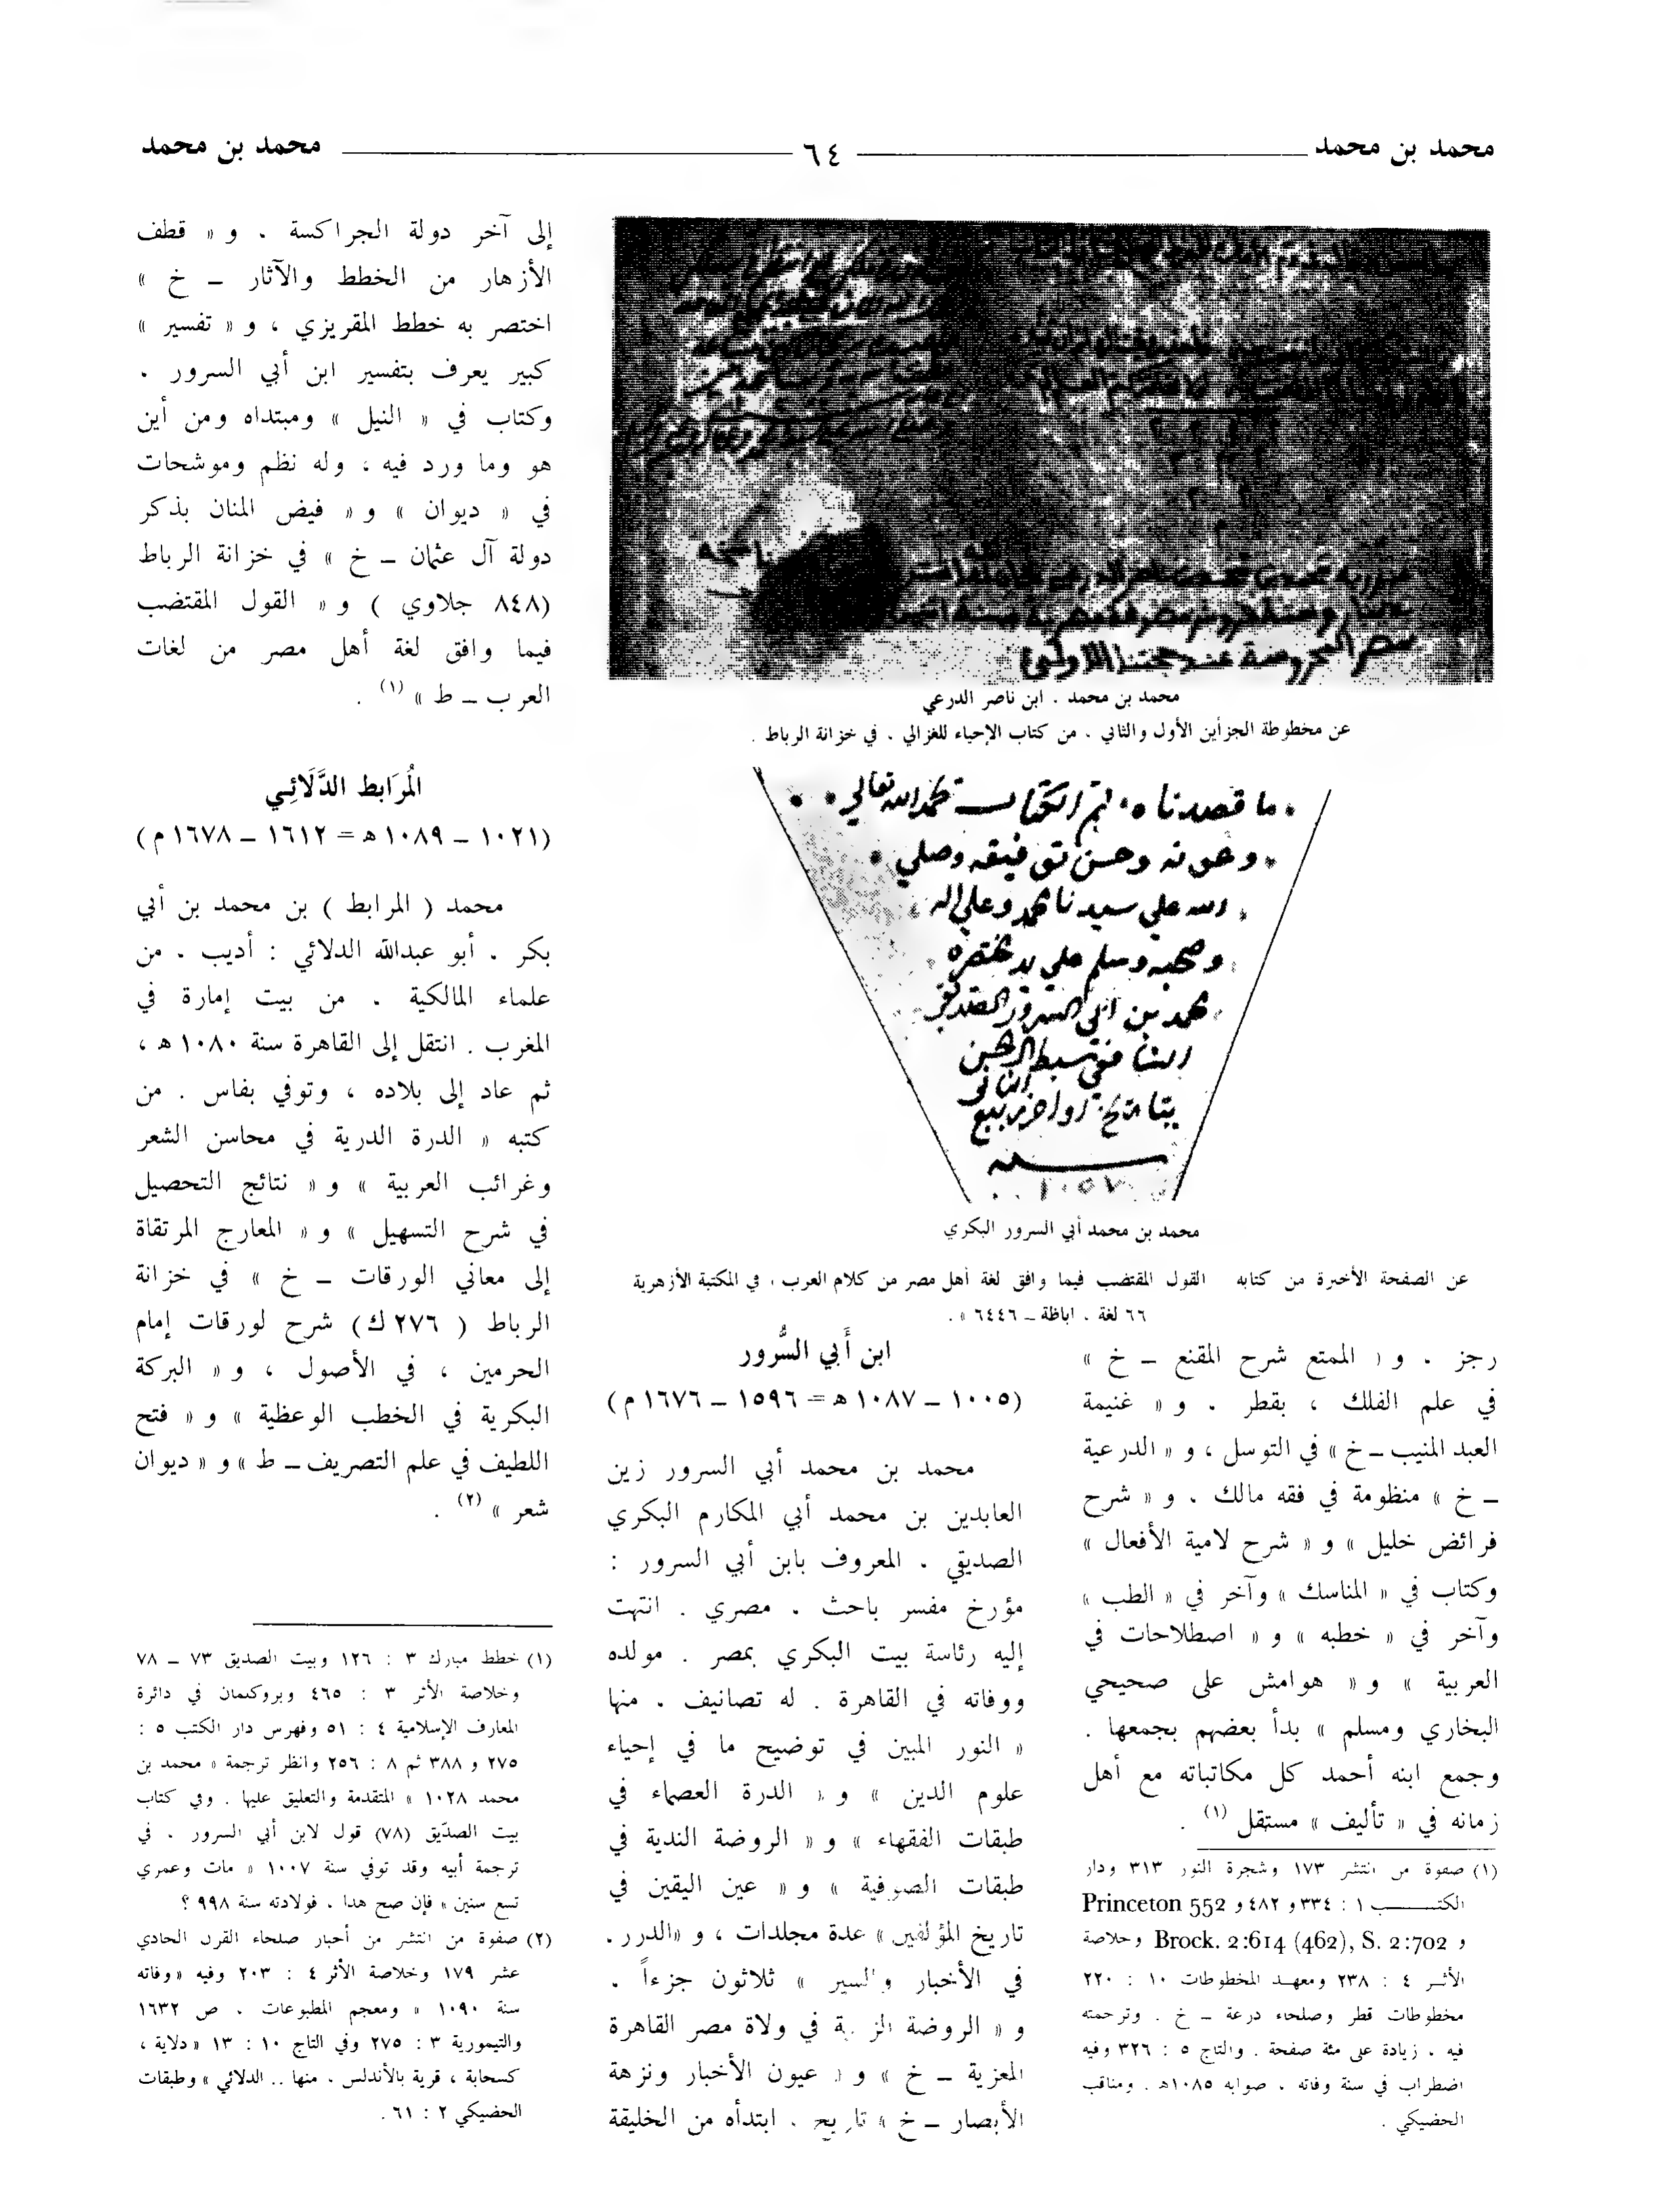 محمد بن محمد ٦٤ محمد بن محمد
محمد بن محمد ، ابن ناصر الدرعي
عن مخطوطة الجزأين الأول والثاني ، من كتاب الإحياء للغزالي ، في خزانة الرباط .
ما قصدناه تم الكتاب بحمد الله تعالي
وعونه وحسن توفيقه وصلي
الله علي سيدنا محمد وعلي اله
وصحبه وسلم علي يد مختصره
محمد بن ابي السرور الصديقي
الشافعي سبط الحسن
بتاريخ اواخر ربيع الثاني
سنة
١٠٥٧
محمد بن محمد أبي السرور البكري
عن الصفحة الأخيرة من كتابه القول المقتضب فيما وافق لغة أهل مصر من كلام العرب ، في المكتبة الأزهرية
٦٦ لغة ، اباظة ــ ٦٤٤٦ » .
رجز . و « الممتع شرح المقنع ــ خ »
في علم الفلك ، بقطر . و « غنيمة
العبد المنيب ــ خ » في التوسل ، و « الدرعية
ــ خ » منظومة في فقه مالك . و « شرح
فرائض خليل » و « شرح لامية الأفعال »
وكتاب في « المناسك » وآخر في « الطب »
وآخر في « خطبه » و « اصطلاحات في
العربية » و « هوامش على صحيحي
البخاري ومسلم » بدأ بعضهم بجمعها .
وجمع ابنه أحمد كل مكاتباته مع أهل
زمانه في « تأليف » مستقل (١) .
(١) صفوة من انتشر ١٧٣ وشجرة النور ٣١٣ ودار
الكتب ١ : ٣٣٤ و ٤٨٢ و Princeton 552
و Brock. 2:614 (462), S. 2:702 وخلاصة
الأثر ٤ : ٢٣٨ ومعهد المخطوطات ١٠ : ٢٢٠
مخطوطات قطر وصلحاء درعة ــ خ . وترجمته
فيه ، زيادة على مئة صفحة . والتاج ٥ : ٣٢٦ وفيه
اضطراب في سنة وفاته ، صوابه ١٠٨٥هـ . ومناقب
الحضيكي .
ابن أَبي السُّرور
(١٠٠٥ ــ ١٠٨٧ هـ = ١٥٩٦ ــ ١٦٧٦ م)
محمد بن محمد أبي السرور زين
العابدين بن محمد أبي المكارم البكري
الصديقي ، المعروف بابن أبي السرور :
مؤرخ مفسر باحث ، مصري . انتهت
إليه رئاسة بيت البكري بمصر . مولده
ووفاته في القاهرة . له تصانيف ، منها
« النور المبين في توضيح ما في إحياء
علوم الدين » و « الدرة العصماء في
طبقات الفقهاء » و « الروضة الندية في
طبقات الصوفية » و « عين اليقين في
تاريخ المؤلفين » عدة مجلدات ، و «الدرر .
في الأخبار والسير » ثلاثون جزءاً .
و « الروضة الزهية في ولاة مصر القاهرة
المعزية ــ خ » و « عيون الأخبار ونزهة
الأبصار ــ خ » تاريخ ، ابتدأه من الخليقة
إلى آخر دولة الجراكسة . و « قطف
الأزهار من الخطط والآثار ــ خ »
اختصر به خطط المقريزي ، و « تفسير »
كبير يعرف بتفسير ابن أبي السرور .
وكتاب في « النيل » ومبتداه ومن أين
هو وما ورد فيه ، وله نظم وموشحات
في « ديوان » و « فيض المنان بذكر
دولة آل عثمان ــ خ » في خزانة الرباط
(٨٤٨ جلاوي ) و « القول المقتضب
فيما وافق لغة أهل مصر من لغات
العرب ــ ط » (١) .
المُرَابط الدَّلَائِي
(١٠٢١ ــ ١٠٨٩ هـ = ١٦١٢ ــ ١٦٧٨ م)
محمد ( المرابط ) بن محمد بن أبي
بكر ، أبو عبدالله الدلائي : أديب ، من
علماء المالكية . من بيت إمارة في
المغرب . انتقل إلى القاهرة سنة ١٠٨٠ هـ ،
ثم عاد إلى بلاده ، وتوفي بفاس . من
كتبه « الدرة الدرية في محاسن الشعر
وغرائب العربية » و « نتائج التحصيل
في شرح التسهيل » و « المعارج المرتقاة
إلى معاني الورقات ــ خ » في خزانة
الرباط ( ٢٧٦ ك) شرح لورقات إمام
الحرمين ، في الأصول ، و « البركة
البكرية في الخطب الوعظية » و « فتح
اللطيف في علم التصريف ــ ط » و « ديوان
شعر » (٢) .
(١) خطط مبارك ٣ : ١٢٦ وبيت الصديق ٧٣ ــ ٧٨
وخلاصة الأثر ٣ : ٤٦٥ وبروكلمان في دائرة
المعارف الإسلامية ٤ : ٥١ وفهرس دار الكتب ٥ :
٢٧٥ و ٣٨٨ ثم ٨ : ٢٥٦ وانظر ترجمة « محمد بن
محمد ١٠٢٨ » المتقدمة والتعليق عليها . وفي كتاب
بيت الصدّيق (٧٨) قول لابن أبي السرور ، في
ترجمة أبيه وقد توفي سنة ١٠٠٧ « مات وعمري
تسع سنين » فإن صح هذا ، فولادته سنة ٩٩٨ ؟
(٢) صفوة من انتشر من أخبار صلحاء القرن الحادي
عشر ١٧٩ وخلاصة الأثر ٤ : ٢٠٣ وفيه «وفاته
سنة ١٠٩٠ » ومعجم المطبوعات ، ص ١٦٣٢
والتيمورية ٣ : ٢٧٥ وفي التاج ١٠ : ١٣ «دلاية ،
كسحابة ، قرية بالأندلس ، منها .. الدلائي » وطبقات
الحضيكي ٢ : ٦١ .